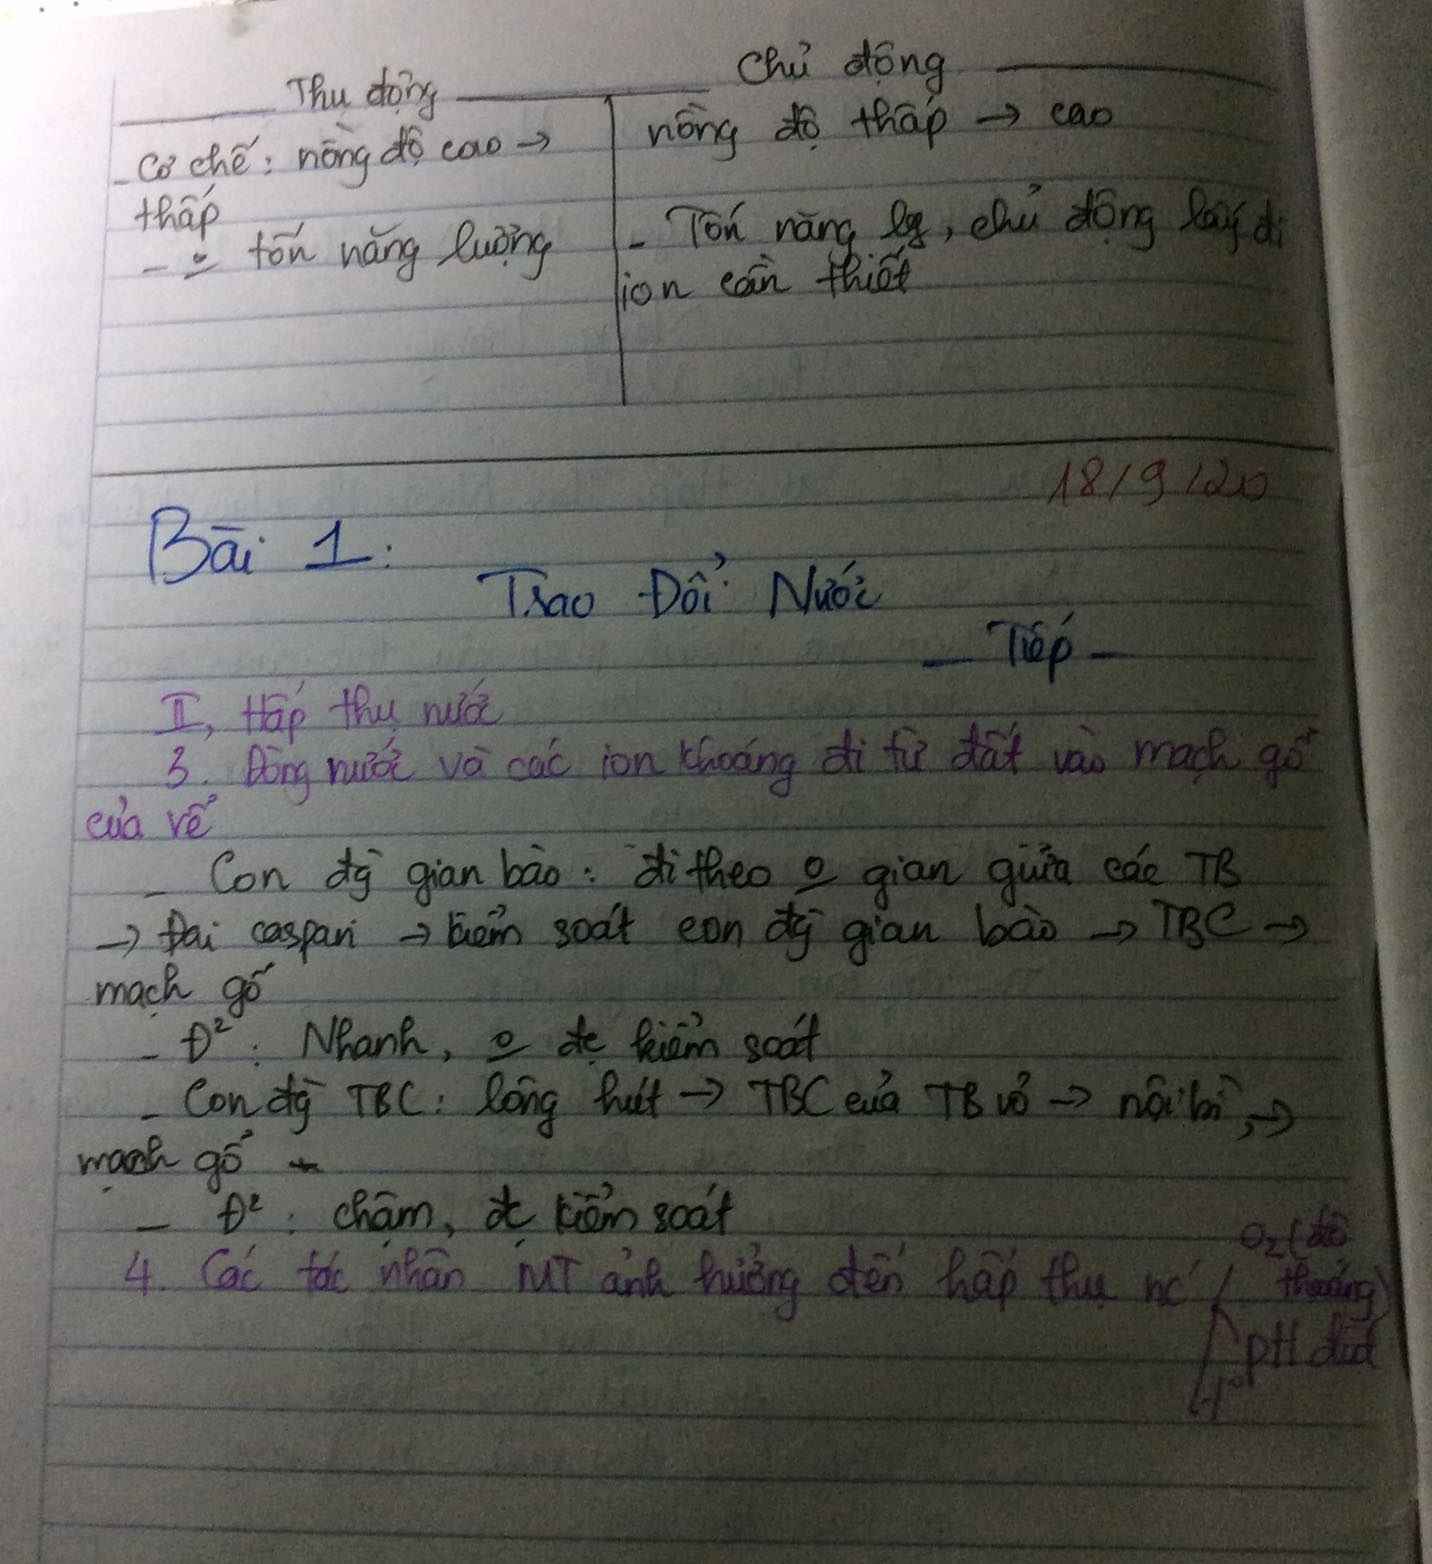 Thụ động
Chủ động
- Cơ chế: nồng độ cao →
thấp
- o tốn năng lượng
nồng độ thấp → cao
- Tốn năng lg, chủ động lấy đi
ion cần thiết
18/9/20
Bài 1:
Trao Đổi Nước
- Tiếp -
II, Hấp thụ nước
3. Dòng nước và các ion khoáng đi từ đất vào mạch gỗ
của rễ
- Con đg gian bào: đi theo o gian giữa các TB
→ Đai caspari → kiểm soát con đg gian bào → TBC →
mạch gỗ
- Đ²: Nhanh, o đc kiểm soát
- Con đg TBC: lông hút → TBC của TB vỏ → nội bì, →
mạch gỗ
- Đ²: chậm, đc kiểm soát
4. Các tác nhân MT ảnh hưởng đến hấp thụ nc
O₂ (độ
thoáng)
pH đất